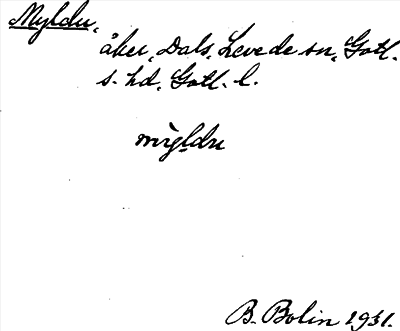 Myldu,
åker, Dals, Levede sn, Gotl.
s. hd, Gotl. l.
mỳldu
B. Bolin 1931.